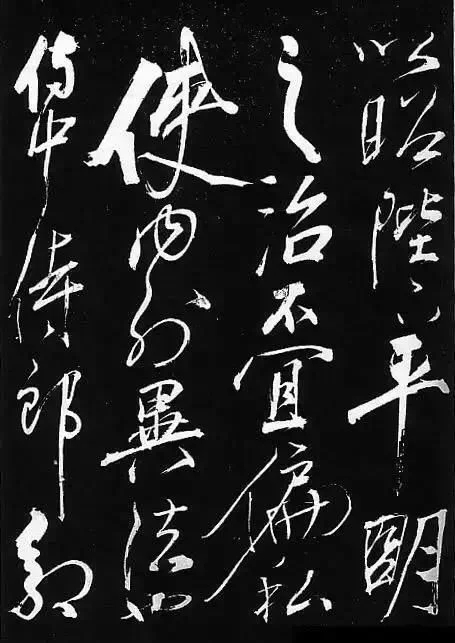 以昭陛下平明
之治不宜偏私
使內外異法也
侍中侍郎郭